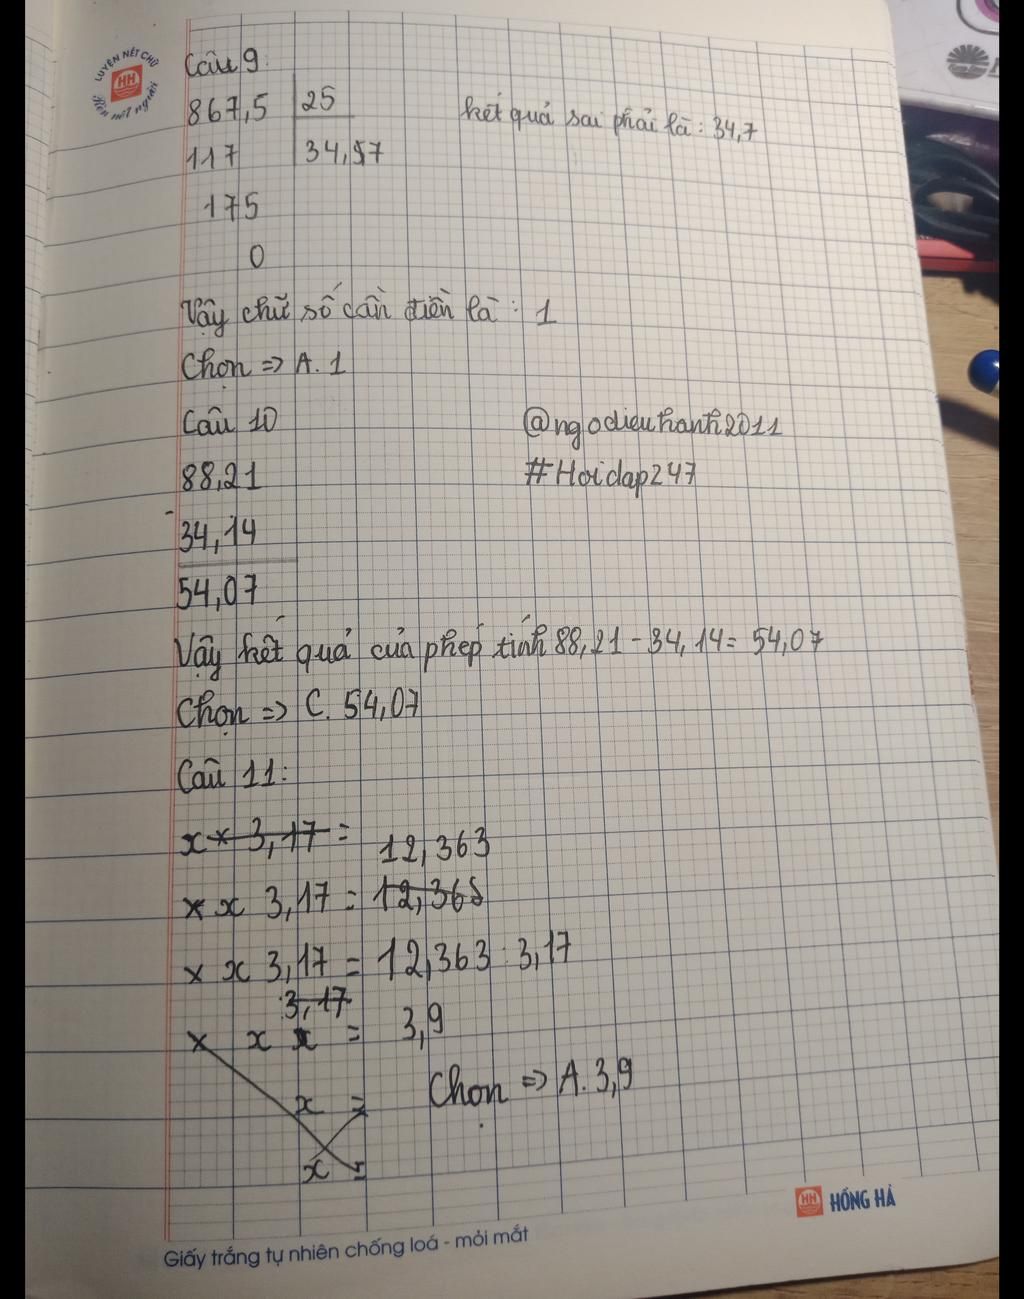 LUYỆN NÉT CHỮ
HH
Rèn nết người
Câu 9:
867,5 25 kết quả sai phải là: 34,7
117 34,57
175
0
Vậy chữ số cần điền là: 1
Chọn => A. 1
Câu 10 @ngodieuhanh2011
88,21 #Hoidap247
-
34,14
54,07
Vậy kết quả của phép tính 88,21 - 34,14 = 54,07
Chọn => C. 54,07
Câu 11:
x × 3,17 =
12,363
× x 3,17 = 12,368
× x 3,17 = 12,363 : 3,17
3,17
× x x = 3,9
Chọn => A. 3,9
x =
x =
HH HỒNG HÀ
Giấy trắng tự nhiên chống loá - mỏi mắt